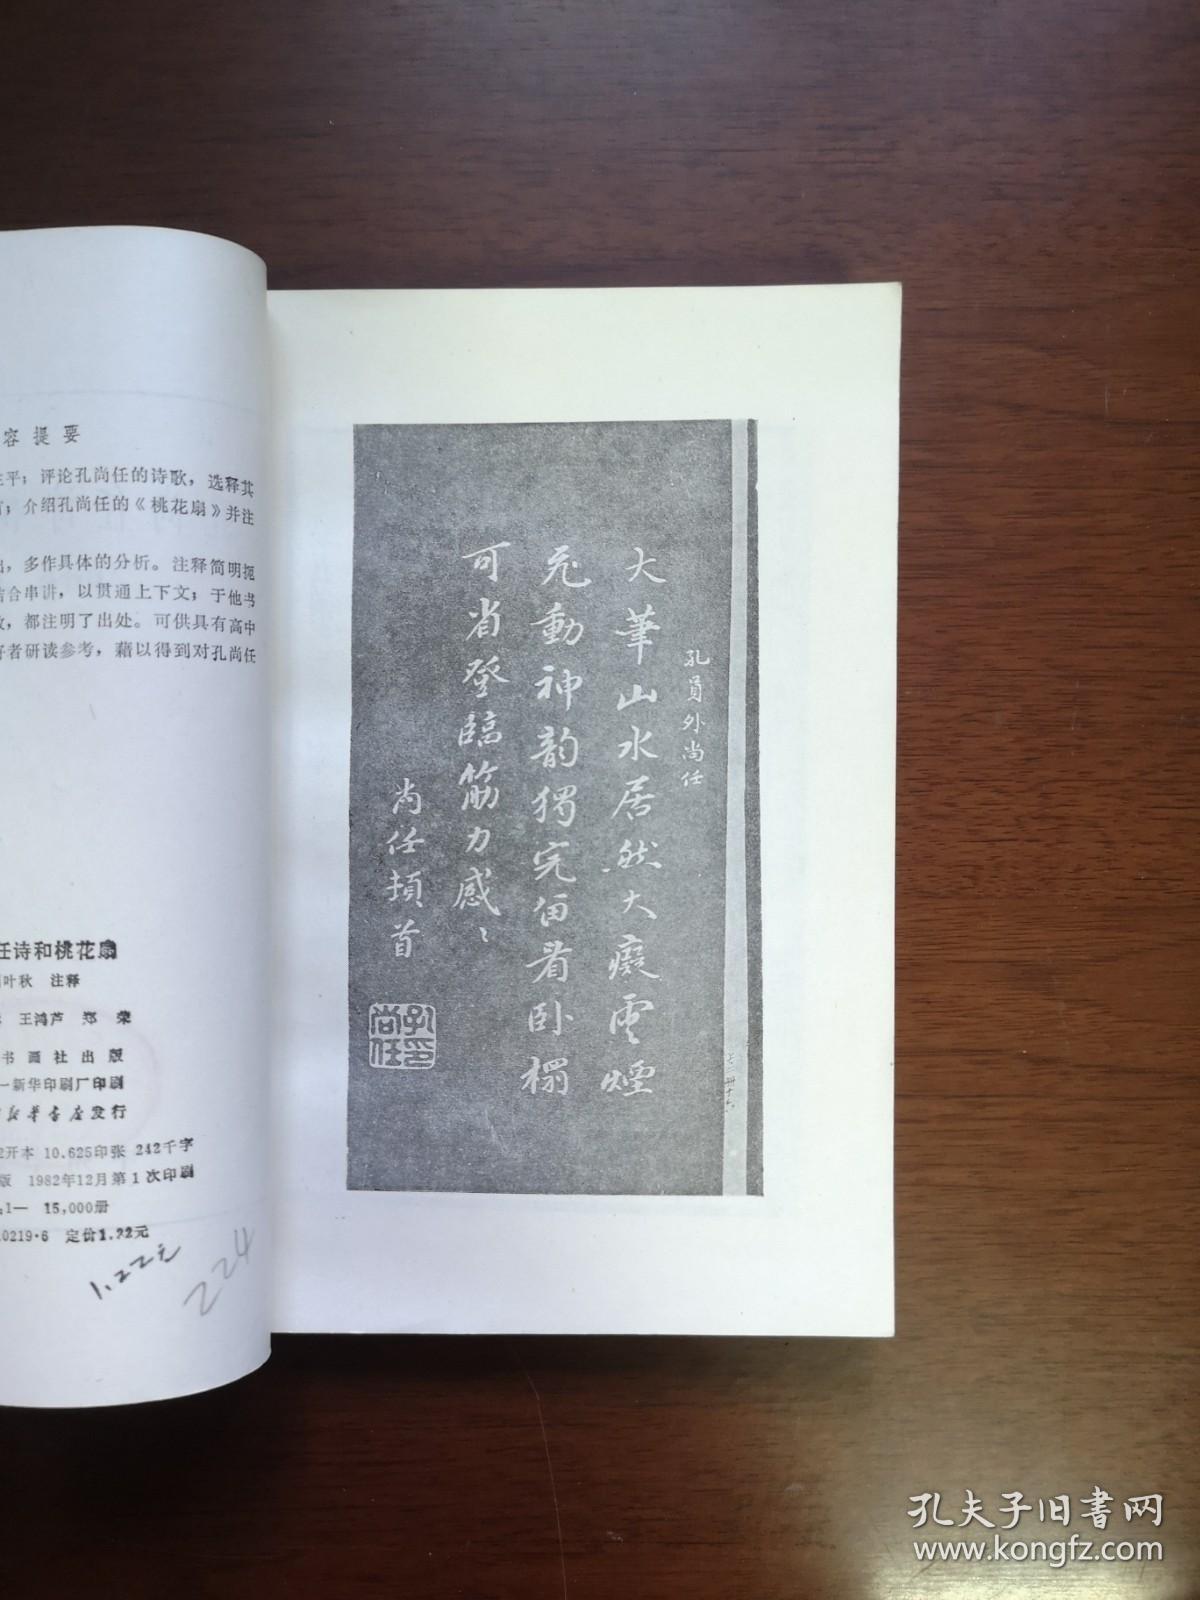 容提要
平；评论孔尚任的诗歌，选释其
；介绍孔尚任的《桃花扇》并注
，多作具体的分析。注释简明扼
结合串讲，以贯通上下文；于他书
，都注明了出处。可供具有高中
好者研读参考，藉以得到对孔尚任
任诗和桃花扇
叶秋 注释
王鸿芦 郑荣
书画社出版
一新华印刷厂印刷
新华书店发行
2开本 10.625印张 242千字
版 1982年12月第1次印刷
1— 15,000册
0219·6 定价1.22元
1.22元
224
孔員外尚任
大筆山水居然大癡雲煙
飛動神韵獨完留着卧榻
可省登臨筋力感〻
尚任頓首
孔尚任印
孔夫子旧书网
www.kongfz.com